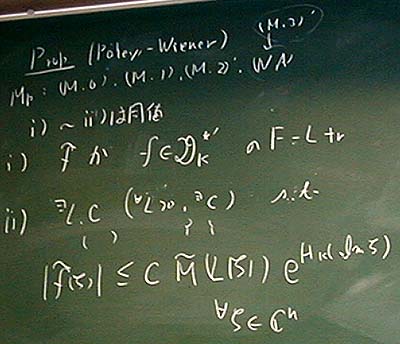 (M.3)'
Prop (Paley-Wiener) ↓
Mp : (M.0), (M.1), (M.2)', NA
i) ~ ii) は同値
i) f̃ が f ∈ 𝒟_K^*' の F=L tr
ii) ∃L, C (∀L>0, ∃C) s.t.
|f̃(ζ)| ≤ C M̃(L|ζ|) e^{H_K(Im ζ)}
∀ζ∈ℂⁿ